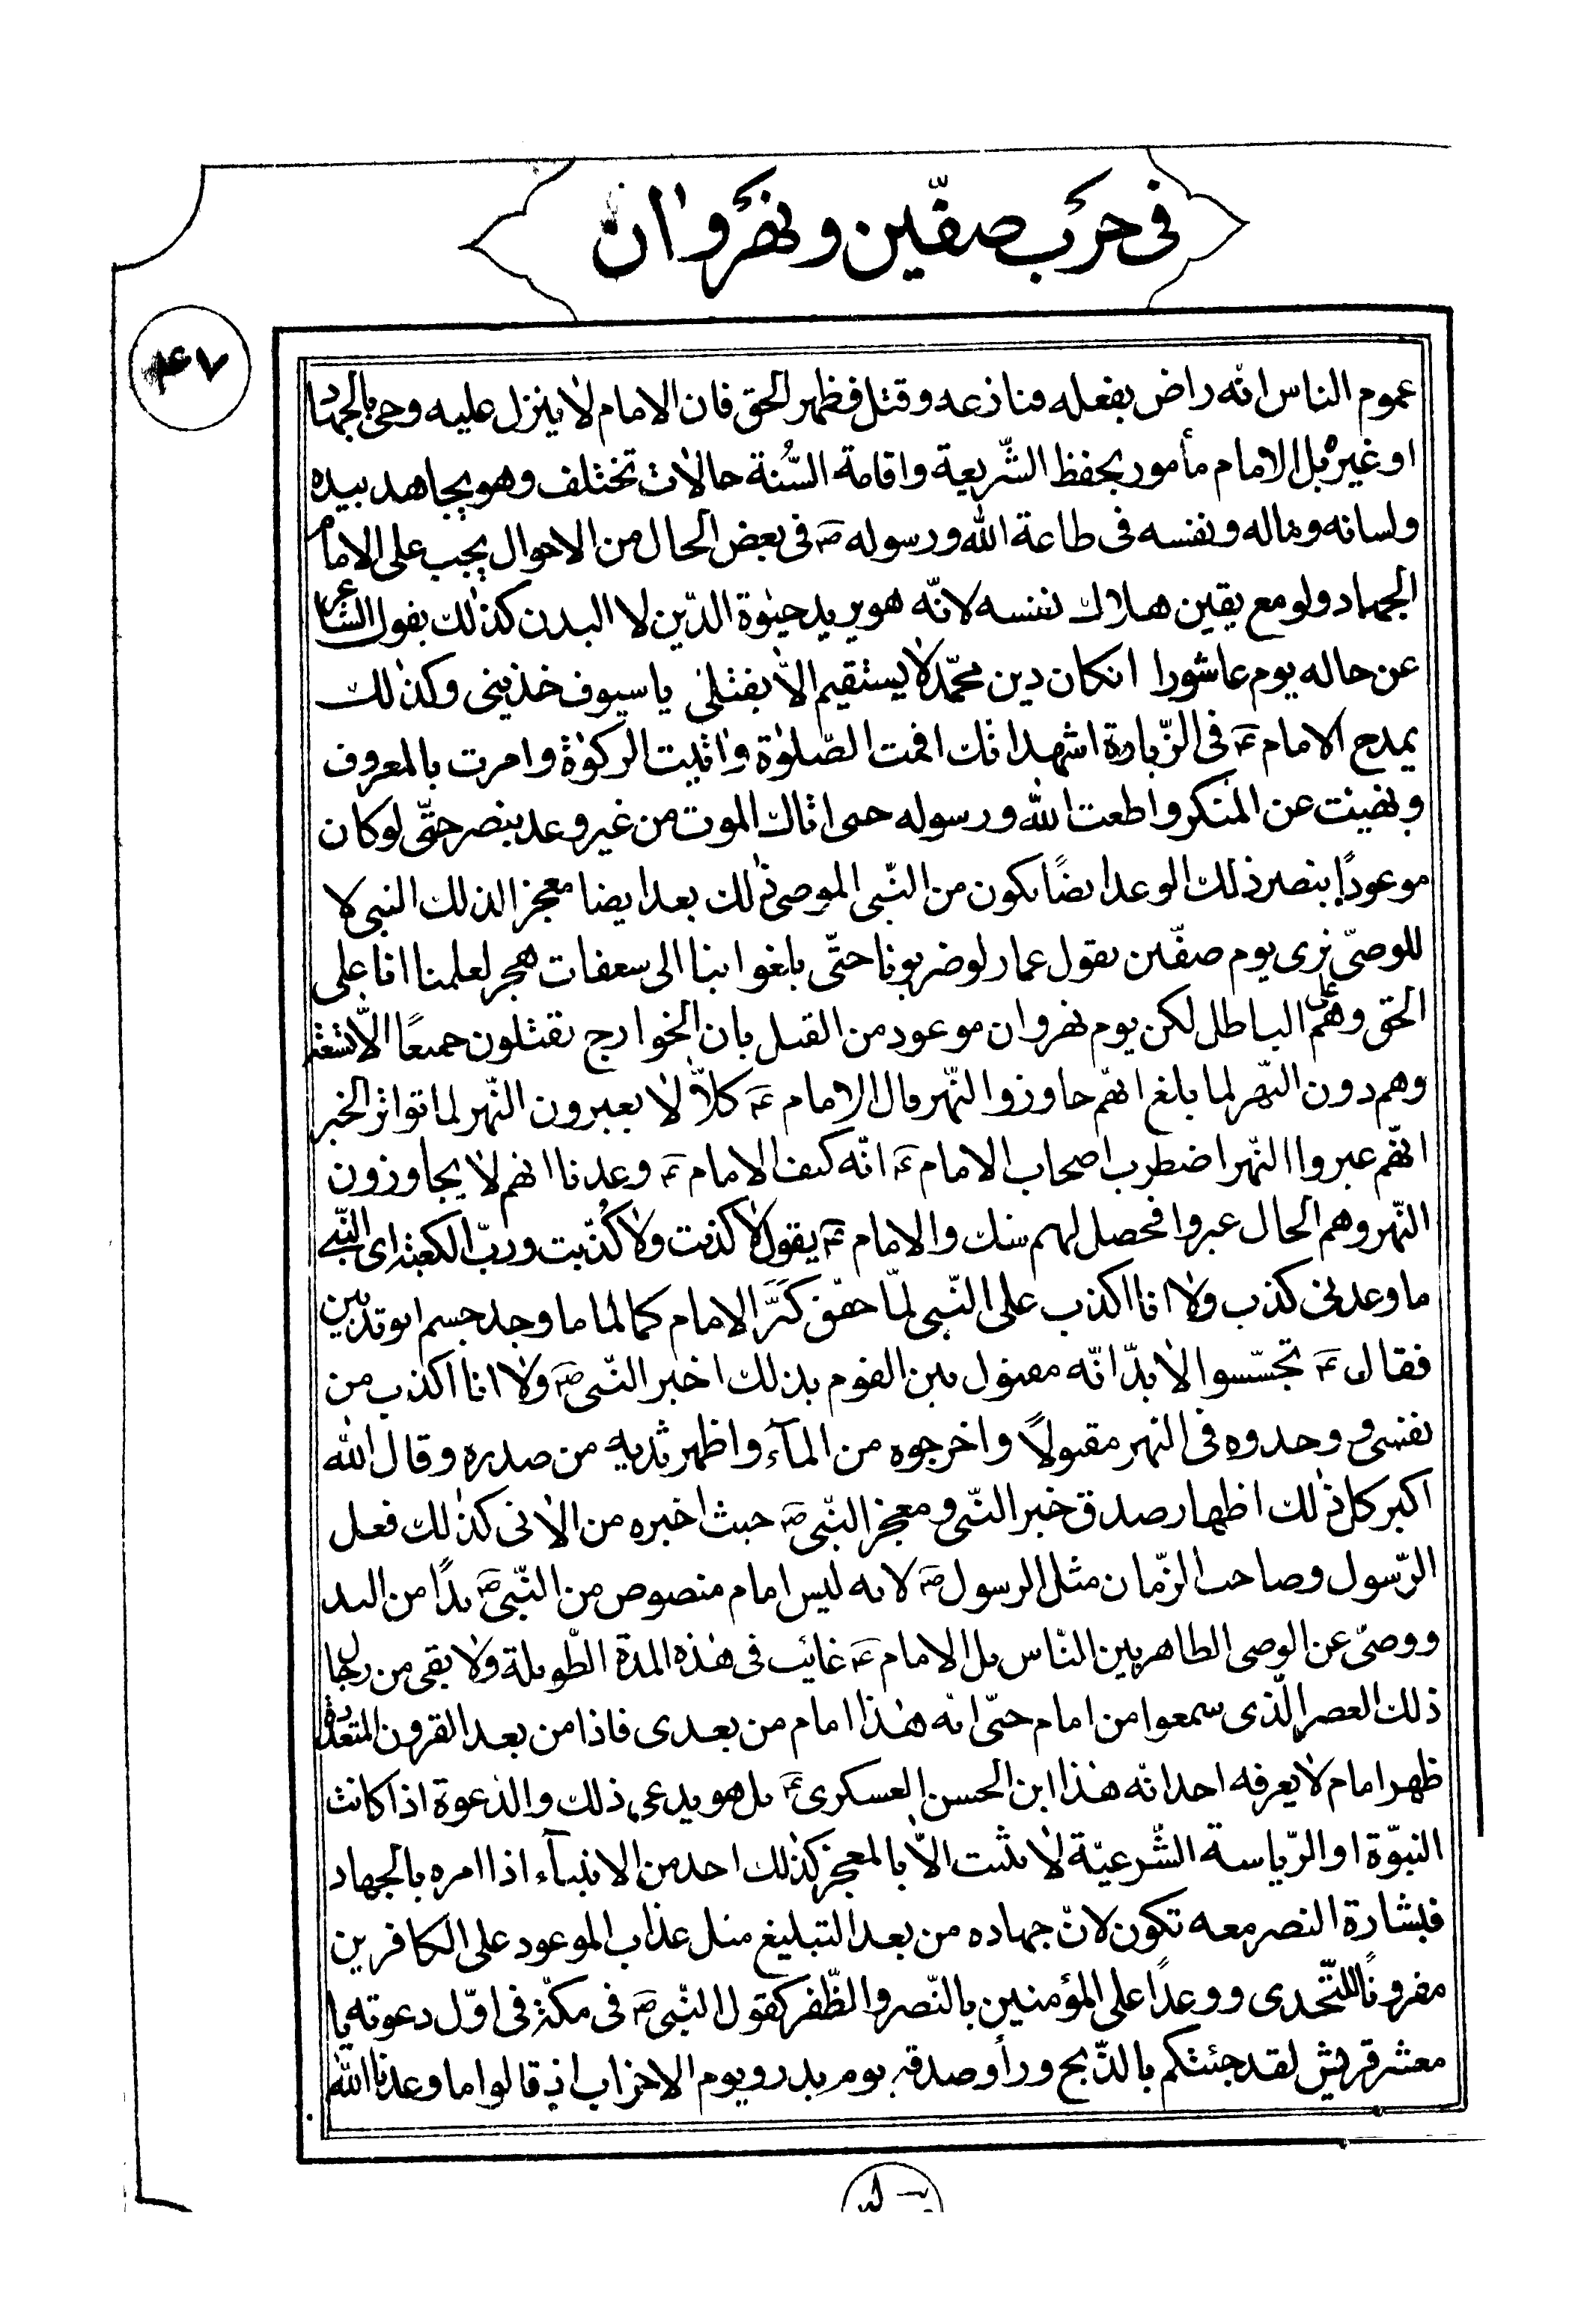 فی حرب صفّین و نهروان
۴۷
عموم الناس انّه راض بفعله فنازعه و قتل فظهر الحق فان الامام لا ینزل علیه وحی بالجهاد
او غیره بل الامام مأمور بحفظ الشّریعة و اقامة السُّنة حالات تختلف وهو یجاهد بیده
ولسانه وماله ونفسه فی طاعة الله ورسوله ص فی بعض الحال من الاحوال یجب علی الامام
الجهاد ولو مع یقین هلاك نفسه لانّه هو یرید حیوٰة الدّین لا البدن کذٰلك یقول الشاعر
عن حاله یوم عاشورا انکان دین محمّد لا یستقیم الّا بقتلی یا سیوف خذینی وکذلك
یمدح الامام ع فی الزّیارة اشهد انّك اقمت الصّلوٰة واتیت الزکوٰة وامرت بالمعروف
ونهیت عن المنکر واطعت الله ورسوله حتی اتاك الموت من غیر وعد بنصر حتّی لو کان
موعودًا بنصر ذلك الوعد ایضًا یکون من النّبی الموصی ذٰلك بعد ایضا معجز الذلك النبی لا
للوصیّ نری یوم صفّین یقول عمار لو ضربونا حتّی بلغوا بنا الی سعفات هجر لعلمنا انا علی
الحق وهم علی الباطل لکن یوم نهروان موعود من القبل بان الخوارج یقتلون جمیعًا الّا تسعة
وهم دون النّهر لما بلغ انهّم جاوزوا النّهر قال الامام ع کلاّ لا یعبرون النّهر لما تواتر الخبر
انهّم عبروا النّهر اضطرب اصحاب الامام ع انّه کیف الامام ع وعدنا انهم لا یجاوزون
النّهر وهم الحال عبروا فحصل لهم شك والامام ع یقول لا کذبت ولا کُذّبت وربّ الکعبة ای النّبی
ما وعدنی کذب ولا انا اکذب علی النّبی لمّا حقّق کرّ الامام کما لما ما وجد جسم ابو ثدیین
فقال ع تجسّسوا لا بدّ انّه مقتول بین القوم بذلك اخبر النّبی ص ولا انا اکذب من
نفسی و وجدوه فی النهر مقتولاً واخرجوه من المآء واظهر ثدییه من صدره وقال الله
اکبر کل ذٰلك اظهار صدق خبر النّبی و معجز النّبی ص حیث اخبره من الاٰتی کذٰلك فعل
الرّسول وصاحب الزّمان مثل الرسول ص لانه لیس امام منصوص من النّبی ص یدًا من الید
ووصیّ عن الوصی الظاهر بین النّاس بل الامام ع غائب فی هٰذه المدة الطّویلة ولا بقی من رجال
ذلك العصر الّذی سمعوا من امام حتّی انه هٰذا امام من بعدی فاذا من بعد القرون المتعددة
ظهر امام لا یعرفه احد انّه هٰذا ابن الحسن العسکری ع بل هو یدعی ذلك والدّعوة اذا کانت
النبوّة او الرّیاسة الشّرعیّة لا یثبت الاّ بالمعجز کذٰلك احد من الانبیآء اذا امره بالجهاد
فبشارة النصر معه تکون لانّ جهاده من بعد التبلیغ مثل عذاب الموعود علی الکافرین
مقرونًا للتّحدی ووعدًا علی المؤمنین بالنّصر والظّفر کقول النّبی ص فی مکّة فی اوّل دعوته یا
معشر قریش لقد جئتکم بالذّبح ورأوا صدقه یوم بدر ویوم الاحزاب اذ قالوا ما وعدنا الله